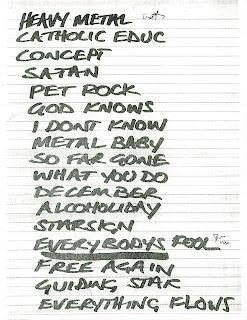 HEAVY METAL
CATHOLIC EDUC
CONCEPT
SATAN
PET ROCK
GOD KNOWS
I DONT KNOW
METAL BABY
SO FAR GONE
WHAT YOU DO
DECEMBER
ALCOHOLIDAY
STARSIGN
EVERYBODYS FOOL
FREE AGAIN
GUIDING STAR
EVERYTHING FLOWS